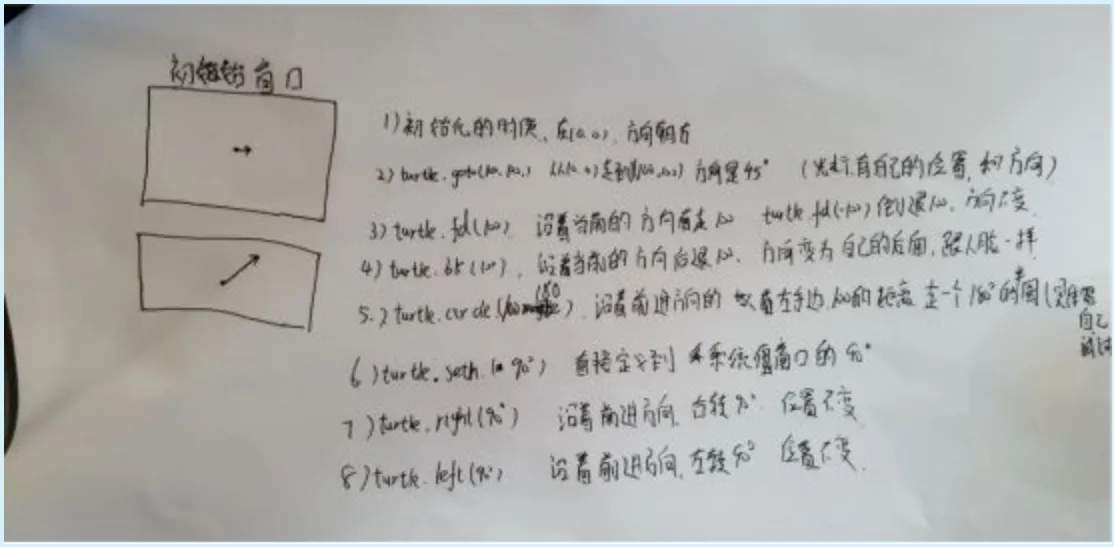 初始始窗口
1)初始化的时候,在(0,0),方向朝右
2)turtle.goto(100,100,) 从(0,0)走到(100,100)方向是45°(光标有自己的位置,和方向)
3)turtle.fd(100) 沿着当前的方向前走100 turtle.fd(-100)倒退100,方向不变
4)turtle.bk(100),沿着当前的方向后退100,方向变为自己的后面,跟人脸一样
5.)turtle.circle(100 180),沿着前进方向的 左手边100的距离 走一个180°的圆(
自己
6)turtle.seth( 90°) 直接定义到 系统窗口的90°
7)turtle.right(90°) 沿着前进方向,右转90° 位置不变
8)turtle.left(90°) 沿着前进方向,左转90° 位置不变